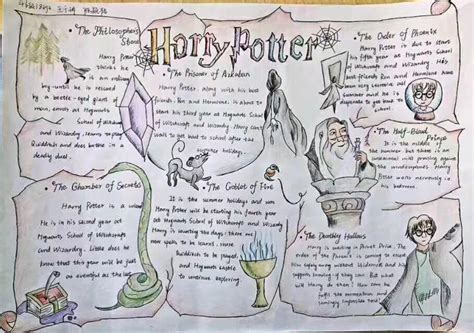 Harry Potter
The Philosopher's
Stone
Harry Potter
thinks he
is an ordinary
boy until he is rescued
by a beetle-eyed giant of
man, enrols at Hogwarts
School of Witchcraft
and Wizardry, learns to play
Quidditch and does battle in a
deadly duel.
The Chamber of Secrets
Harry Potter is a wizard
He is in his second year at
Hogwarts School of Witchcraft
and Wizardry. Little does he
know that this year will be just
as eventful as the last
The Prisoner of Azkaban
Harry Potter, along with his best
friends Ron and Hermione, is about to
start his third year at Hogwarts School
of Witchcraft and Wizardry. Harry can't
wait to get back to school after the
summer holidays.
The Goblet of Fire
It is the summer holidays and soon
Harry Potter will be starting his fourth year
at Hogwarts School of Witchcraft and Wizardry
Harry is counting the days: there are
new spells to be learnt, more
Quidditch to be played,
and Hogwarts castle
to continue exploring.
The Order of Phoenix
Harry Potter is due to start
his fifth year at Hogwarts School
of Witchcraft and Wizardry. His
best friends Ron and Hermione have
been very secretive all
summer and he is
desperate to get back to
school
The Half-Blood
Prince
It is the middle of
the summer, but there is an
unseasonal mist pressing against
the windowpanes. Harry Potter
waits nervously in
his bedroom.
The Deathly Hallows
Harry is waiting in Privet Drive. The
order of the Phoenix is coming to escort
him safely away without Voldemort and his
supporters knowing if they can. But what
will Harry do then? How can he
fulfil the momentous and
seemingly impossible task